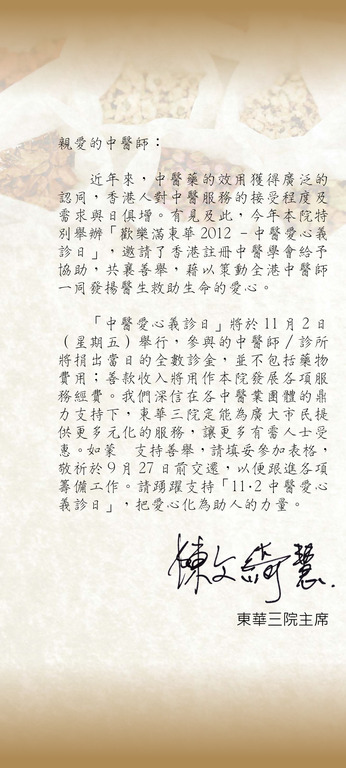 親愛的中醫師：
近年來，中醫藥的效用獲得廣泛的
認同，香港人對中醫服務的接受程度及
需求與日俱增。有見及此，今年本院特
別舉辦「歡樂滿東華 2012 －中醫愛心義
診日」，邀請了香港註冊中醫學會給予
協助，共襄善舉，藉以策動全港中醫師
一同發揚醫生救助生命的愛心。
「中醫愛心義診日」將於 11 月 2 日
（星期五）舉行，參與的中醫師／診所
將捐出當日的全數診金，並不包括藥物
費用；善款收入將用作本院發展各項服
務經費。我們深信在各中醫業團體的鼎
力支持下，東華三院定能為廣大市民提
供更多元化的服務，讓更多有需人士受
惠。如蒙　支持善舉，請填妥參加表格，
敬祈於 9 月 27 日前交還，以便跟進各項
籌備工作。請踴躍支持「11‧2 中醫愛心
義診日」，把愛心化為助人的力量。
陳文綺慧
東華三院主席